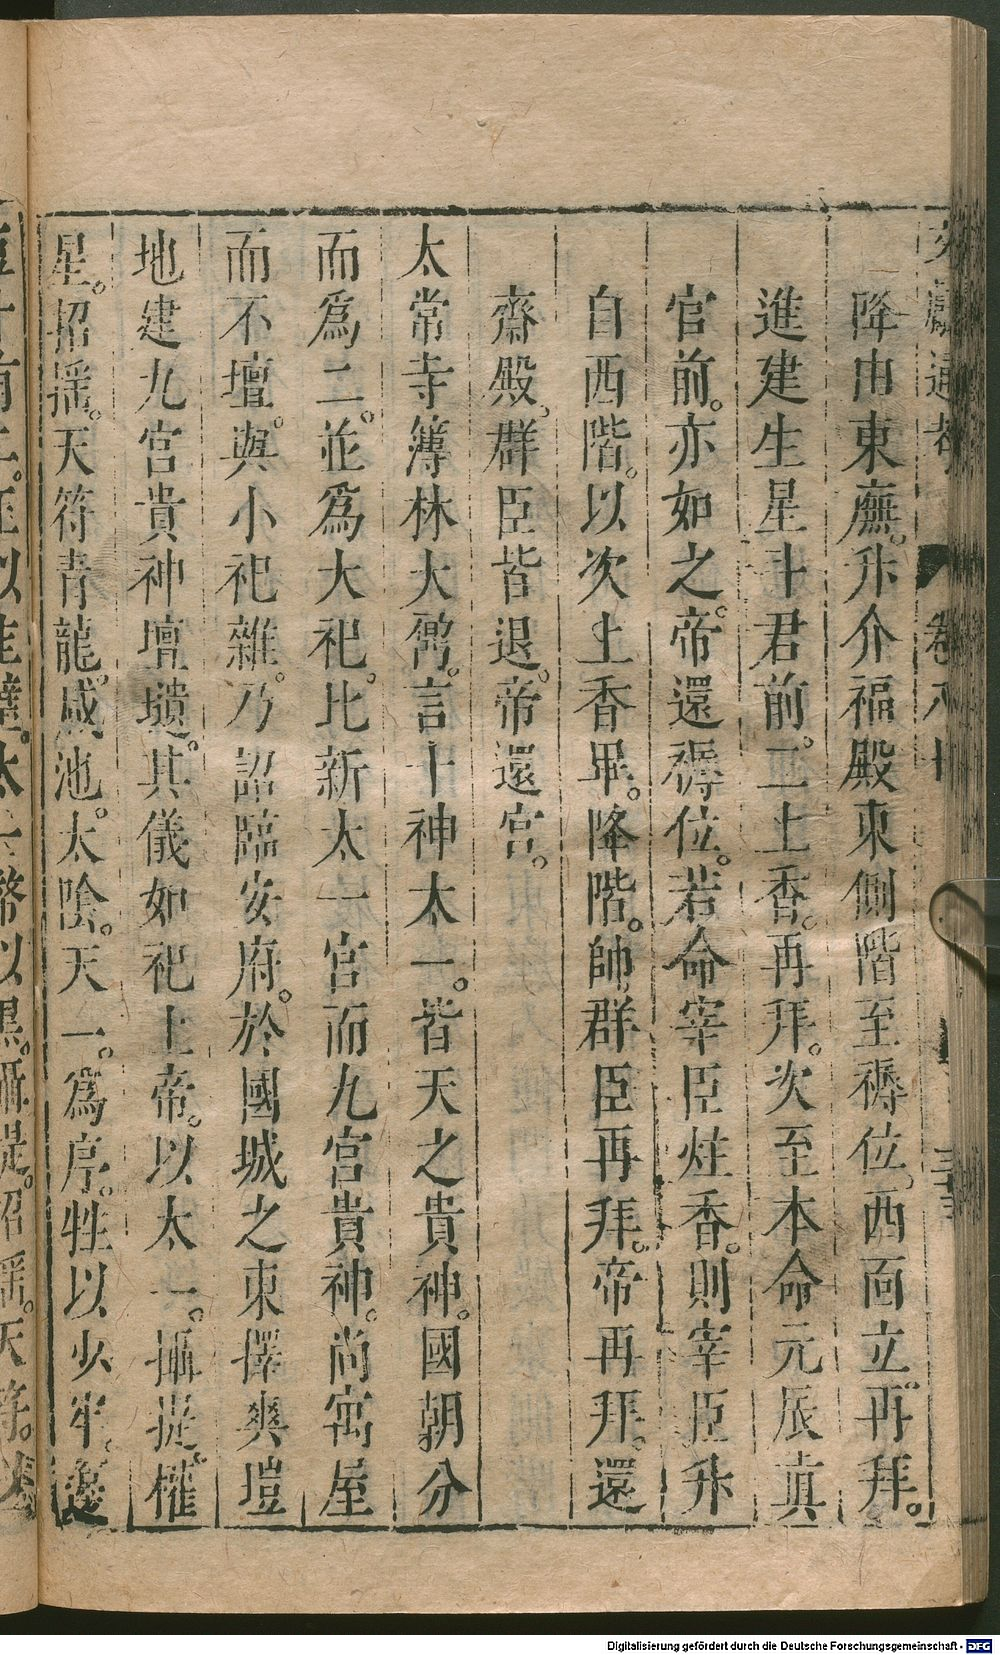 文獻通考 卷八十
降由東廡。升介福殿東側階至褥位。西面立。再拜。
進建生星斗君前。三上香。再拜。次至本命元辰真
官前。亦如之。帝還褥位。若命宰臣炷香。則宰臣升
自西階。以次上香畢。降階。帥群臣再拜。帝再拜。還
齋殿。群臣皆退。帝還宮。
太常寺簿林大鼐。言十神太一。皆天之貴神。國朝分
而爲二。並爲大祀。比新太一宮而九宮貴神。尚寓屋
而不壇。與小祀雜。乃詔臨安府。於國城之東擇爽塏
地建九宮貴神壇壝。其儀如祀上帝。以太一。攝提。權
星。招搖。天符青龍。咸池。太陰。天一。爲序。牲以少牢。
Digitalisierung gefördert durch die Deutsche Forschungsgemeinschaft - DFG